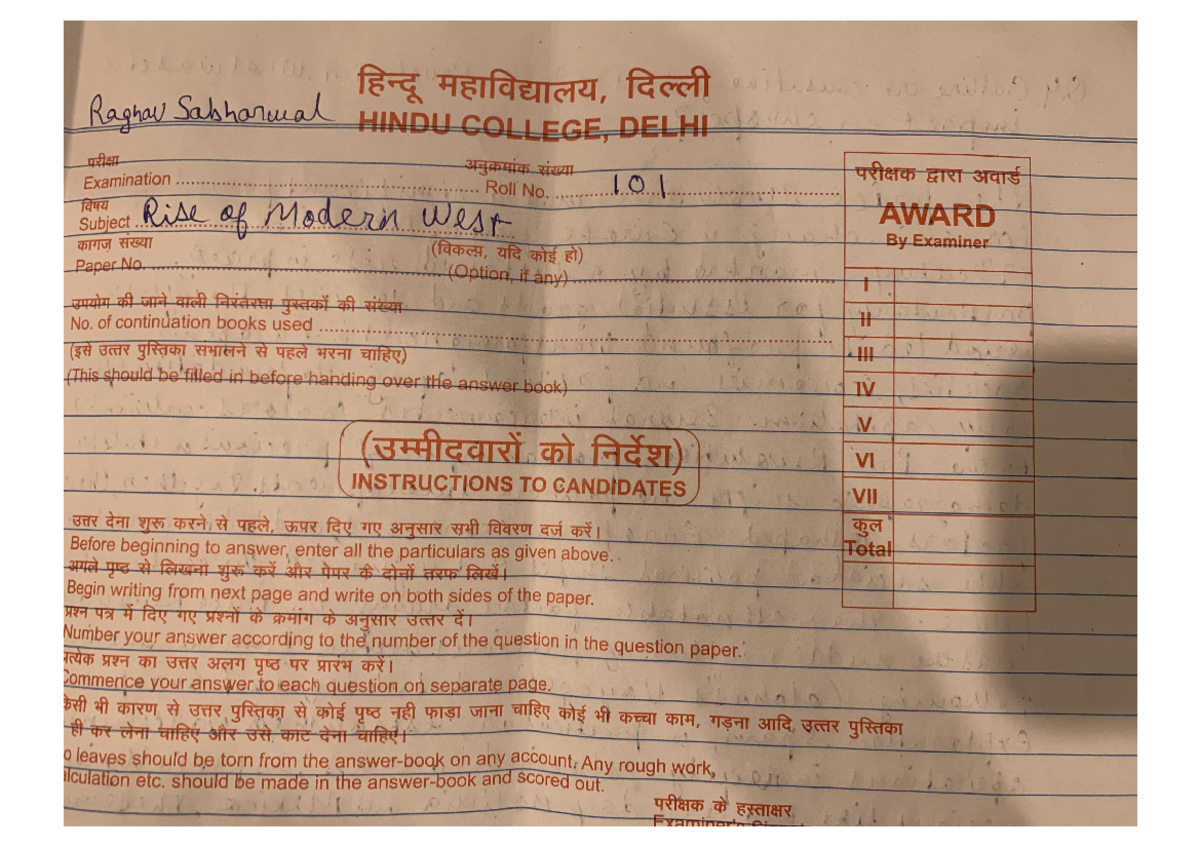 हिन्दू महाविद्यालय, दिल्ली
Raghav Sabharwal
HINDU COLLEGE, DELHI
परीक्षा
Examination
अनुक्रमांक संख्या
Roll No. 101
विषय
Subject Rise of Modern West
कागज़ संख्या
Paper No.
(विकल्प, यदि कोई हो)
(Option, if any)
उपयोग की जाने वाली निरंतरता पुस्तकों की संख्या
No. of continuation books used
(इसे उत्तर पुस्तिका संभालने से पहले भरना चाहिए)
(This should be filled in before handing over the answer book)
परीक्षक द्वारा अवार्ड
AWARD
By Examiner
I
II
III
IV
V
VI
VII
कुल
Total
(उम्मीदवारों को निर्देश)
INSTRUCTIONS TO CANDIDATES
उत्तर देना शुरू करने से पहले, ऊपर दिए गए अनुसार सभी विवरण दर्ज करें।
Before beginning to answer, enter all the particulars as given above.
अगले पृष्ठ से लिखना शुरू करें और पेपर के दोनों तरफ लिखें।
Begin writing from next page and write on both sides of the paper.
प्रश्न पत्र में दिए गए प्रश्नों के क्रमांग के अनुसार उत्तर दें।
Number your answer according to the number of the question in the question paper.
प्रत्येक प्रश्न का उत्तर अलग पृष्ठ पर प्रारंभ करें।
Commence your answer to each question on separate page.
केसी भी कारण से उत्तर पुस्तिका से कोई पृष्ठ नही फाड़ा जाना चाहिए कोई भी कच्चा काम, गड़ना आदि उत्तर पुस्तिका
ही कर लेना चाहिए और उसे काट देना चाहिए।
o leaves should be torn from the answer-book on any account. Any rough work,
alculation etc. should be made in the answer-book and scored out.
परीक्षक के हस्ताक्षर
Examiner's